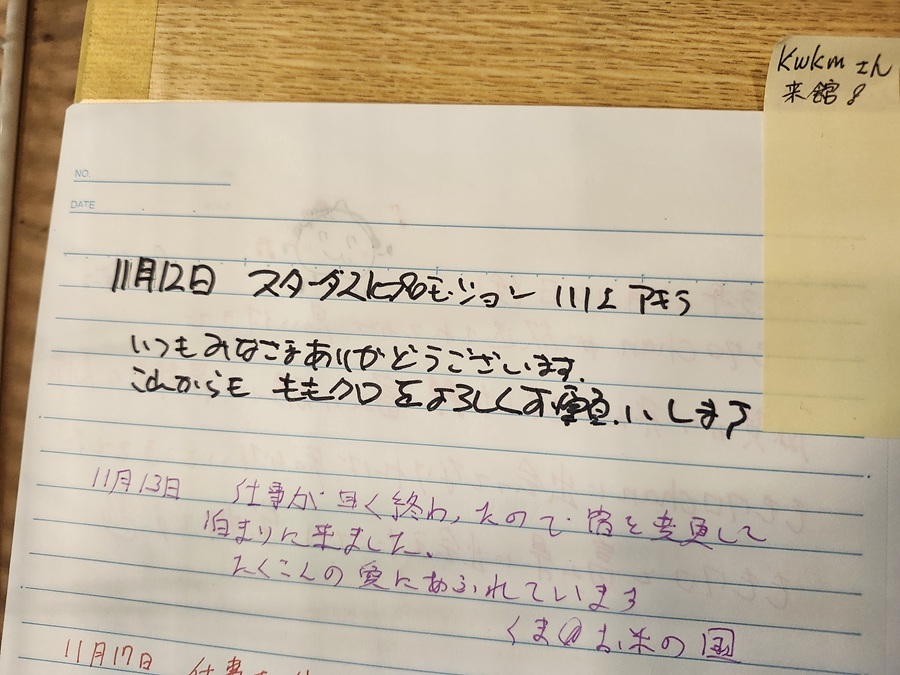 Kwkmさん
来館8
NO.
DATE
11月12日 スターダストプロモーション 川上アキラ
いつもみなさまありがとうございます。
これからも ももクロをよろしくお願いします
11月13日 仕事が早く終わったので宿を変更して
泊まりに来ました。
たくさんの愛にあふれています
くま@お米の国
11月17日 仕事